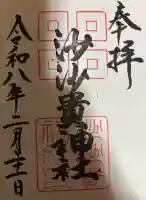 奉拝
沙沙貴神社
令和八年二月十一日